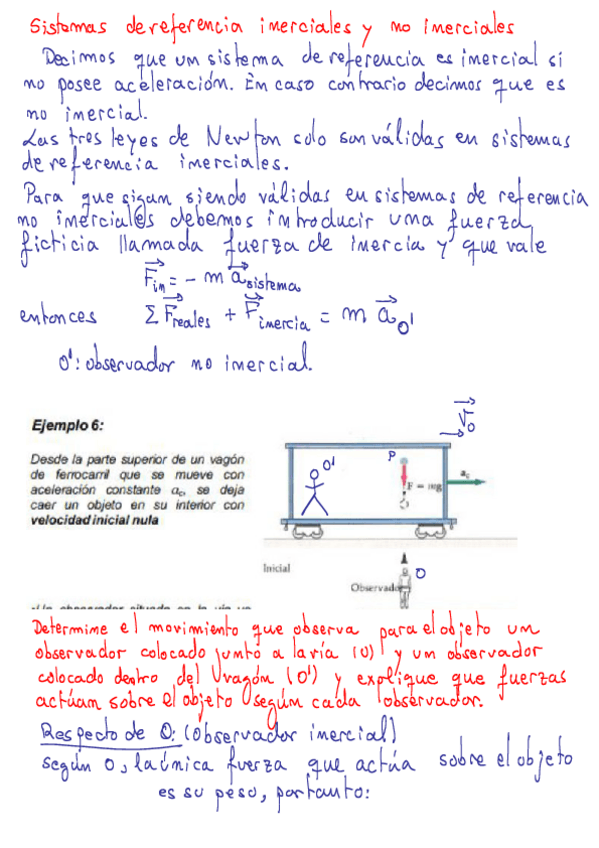 Sistemas de referencia inerciales y no inerciales
Decimos que un sistema de referencia es inercial si
no posee aceleración. En caso contrario decimos que es
no inercial.
Las tres leyes de Newton solo son válidas en sistemas
de referencia inerciales.
Para que sigan siendo válidas en sistemas de referencia
no inerciales debemos introducir una fuerza
ficticia llamada fuerza de inercia y que vale
F⃗in = - m a⃗sistema
entonces Σ F⃗reales + F⃗inercia = m a⃗O'
O': observador no inercial.
Ejemplo 6:
Desde la parte superior de un vagón
de ferrocarril que se mueve con
aceleración constante a₀, se deja
caer un objeto en su interior con
velocidad inicial nula
V⃗o
O'
P
F = mg
Inicial
Observador
O
Determine el movimiento que observa para el objeto un
observador colocado junto a la vía (O) y un observador
colocado dentro del vagón (O') y explique que fuerzas
actúan sobre el objeto según cada observador.
Respecto de O: (observador inercial)
según O, la única fuerza que actúa sobre el objeto
es su peso, por tanto: